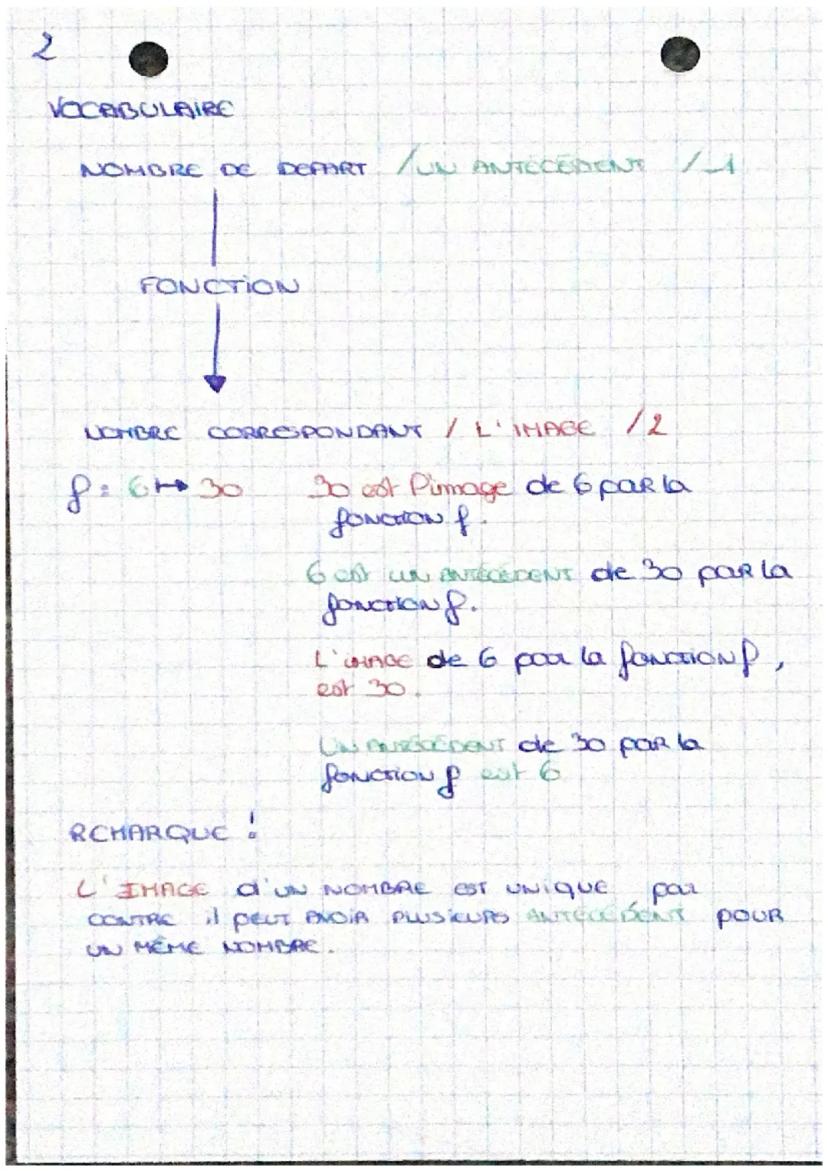 2
VOCABULAIRE
NOMBRE DE DEPART / UN ANTÉCÉDENT / 1
FONCTION
NOMBRE CORRESPONDANT / L'IMAGE / 2
f : 6 ↦ 30 30 est l'image de 6 par la
fonction f.
6 est UN ANTÉCÉDENT de 30 par la
fonction f.
L'IMAGE de 6 par la fonction f,
est 30.
UN ANTÉCÉDENT de 30 par la
fonction f est 6
REMARQUE !
L'IMAGE d'UN NOMBRE EST UNIQUE par
CONTRE il peut AVOIR PLUSIEURS ANTÉCÉDENT POUR
UN MÊME NOMBRE.